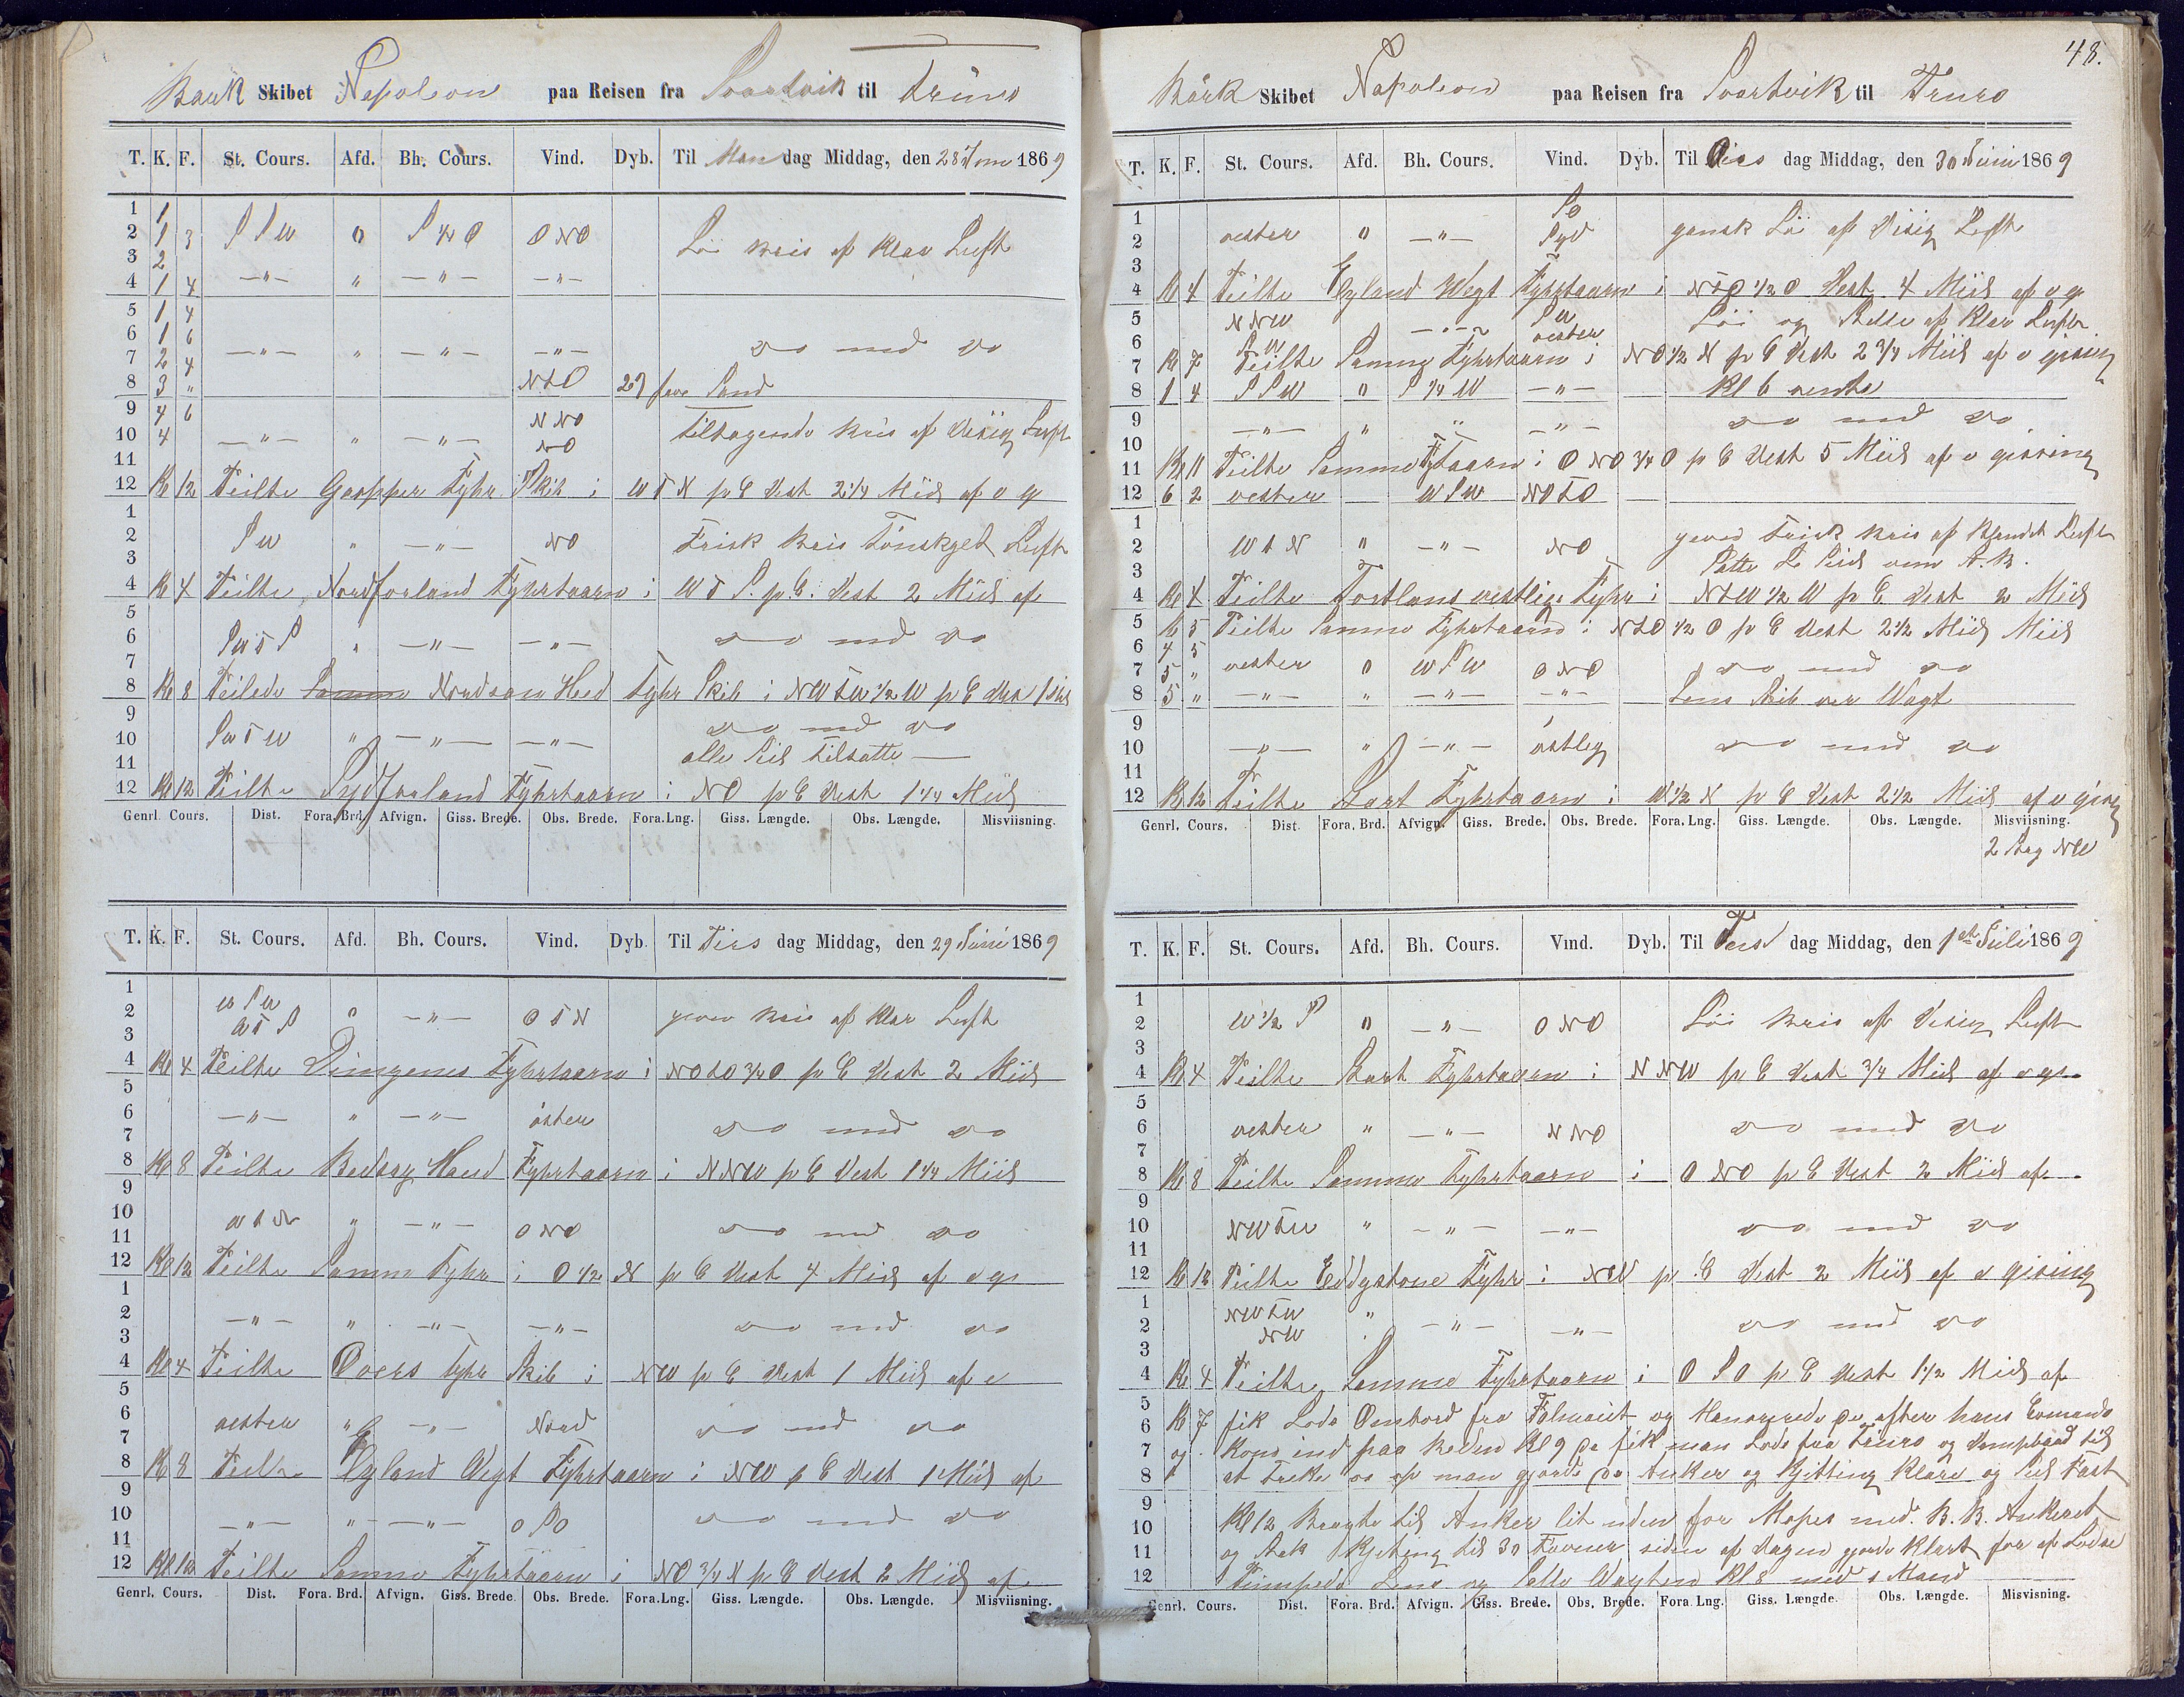 Bark Skibet Napoleon paa Reisen fra Svartvik til Truro
T. K. F. St. Cours. Afd. Bh. Cours. Vind. Dyb. Til Mandag Middag, den 28 Juni 1869
1 1
2 1 3 S S W 0 S ¼ O O N O Löi Bris af Klar Luft
3 2
4 1 4 —"— " —"— —"—
5 1 4
6 1 6 —"— " —"— —"— do med do
7 2 4
8 3 " N t O 27 favn Sand
9 4 6 N NO Tiltagende Bris af disig Luft
10 4 —"— " —"— NO
11
12 Kl 12 Peilte Gaspper Fyhr Skib i W t N p C Dest 2 1/4 Miil af o g
1
2 S W " —"— NO Frisk Bris Tönskyet Luft
3
4 Kl 4 Peilte Nordforland Fyhrtaarn i W t S. p. C. Dest 2 Miil af
5
6 S W t S " —"— —"— do med do
7
8 Kl 8 Peilede Nordsan Hed Fyhr Skib i NW t W ½ W p C Dest 1 Miil
9 do med do
10 S W t W " —"— —"—
11 alle Seil tilsatte —
12 Kl 12 Peilte Sydforland Fyhrtaarn i NO p C Dest 1 1/4 Miil
Genrl. Cours. Dist. Fora. Brd. Afvign. Giss. Brede. Obs. Brede. Fora. Lng. Giss. Længde. Obs. Længde. Misviisning.
T. K. F. St. Cours. Afd. Bh. Cours. Vind. Dyb. Til Tirsdag Middag, den 29 Juni 1869
1 W S W
2 W t S 0 —"— O t N jevn Bris af Klar Luft
3
4 Kl 4 Peilte Dungenes Fyhrtaarn i NO t O 3/4 O p C Dest 2 Miil
5
6 —"— " —"— öster do med do
7
8 Kl 8 Peilte Beday Haed Fyhrtaarn i N NW p C Dest 1 1/4 Miil
9
10 W t N " —"— O NO do med do
11
12 Kl 12 Peilte Samme Fyhr i O 1/2 N p C Dest 4 Miil af o gs
1
2 —"— " —"— —"— do med do
3
4 Kl 4 Peilte Overs Fyhr Skib i NW p C Dest 1 Miil af o
5
6 vester " —"— Nord do med do
7
8 Kl 8 Peilte Eyland Wegt Fyhrtaarn i NW p C Dest 1 Miil af
9
10 —"— " —"— O S O do med do
11
12 Kl 12 Peilte Samme Fyhrtaarn i NO 3/4 N p C Dest 2 Miil af
Genrl. Cours. Dist. Fora. Brd. Afvign. Giss. Brede. Obs. Brede. Fora. Lng. Giss. Længde. Obs. Længde. Misviisning.
48.
Bark Skibet Napoleon paa Reisen fra Svartvik til Truro
T. K. F. St. Cours. Afd. Bh. Cours. Vind. Dyb. Til Onsdag Middag, den 30 Juni 1869
1 S O
2 vester 0 —"— Syd gansk Löi af disig Luft
3
4 Kl 4 Peilte Eyland Wegt Fyhrtaarn i N t O 1/2 O Dest 4 Miil af o gs
5 N NW —"— S W Löi og Stille af Klar Luft
6 S W vester
7 Kl 7 Peilte Samme Fyhrtaarn i NO 1/2 N p C Dest 2 3/4 Miil af o gising
8 1 4 S S W 0 S 1/4 W —"— Kl 6 vendte
9 —"— " " —"— do med do
10
11 Kl 11 Peilte Samme Fytaarn i O NO 3/4 O p C Dest 5 Miil af o gissing
12 6 2 vester — W S W NO t O
1
2 W t N " —"— NO jevnd Frisk Bris af Blandet Luft
3 Satte L Seil
4 Kl 4 Peilte Portlans vestlige Fyhr i N t W 1/2 W p C Dest 2 Miil
5 Kl 5 Peilte Samme Fyhrtaarn i N t O 1/2 O p C Dest 2 1/2 Miil Miil
6 4 5
7 5 " vester 0 W S W O NO do med do
8 5 " —"— " —"— —"— Lens Skib ver Wagt
9
10 —"— " —"— östlig do med do
11
12 Kl 12 Peilte Start Fyhrtaarn i W 1/2 N p C Dest 2 1/2 Miil af o gising
Genrl. Cours. Dist. Fora. Brd. Afvign. Giss. Brede. Obs. Brede. Fora. Lng. Giss. Længde. Obs. Længde. Misviisning.
2 Streg NW
T. K. F. St. Cours. Afd. Bh. Cours. Vind. Dyb. Til Torsdag Middag, den 1ste Juli 1869
1
2 W 1/2 S 0 —"— O NO Löi Bris af disig Luft
3
4 Kl 4 Peilte Start Fyhrtaarn i N NW p C Dest 3/4 Miil af o gs
5
6 vester " —"— N NO do med do
7
8 Kl 8 Peilte Samme Fyhrtaarn i O NO p C Dest 2 Miil af
9
10 NW t W " —"— —"— do med do
11
12 Kl 12 Peilte Eddystone Fyhr i NW p C Dest 2 Miil af o gising
1 NW t W "
2 NW —"— —"— do med do
3
4 Kl 4 Peilte Samme Fyhrtaarn i O S O p C Dest 1 1/2 Miil af
5 Kl 7 fik Lods Ombord fra Falmuiet og Manovrede da efter hans Comando
6
7 og Kom ind paa Reden Kl 9 da fik man Lods fra Truro og Dampbaad til
8 at Treke os op man gjorde da Anker og Kjitting Klare og Seil Fast
9
10 Kl 12 Bragte til Anker lit uden for Mapes med B. B. Ankeret
11 og Stak Kjeting til 30 Favner siden af dagen gjorde Klart for at Lodse
12 Pumpede Lens og Satte Wagten Kl 8 med 1 Mand
Genrl. Cours. Dist. Fora. Brd. Afvign. Giss. Brede. Obs. Brede. Fora. Lng. Giss. Længde. Obs. Længde. Misvisning.